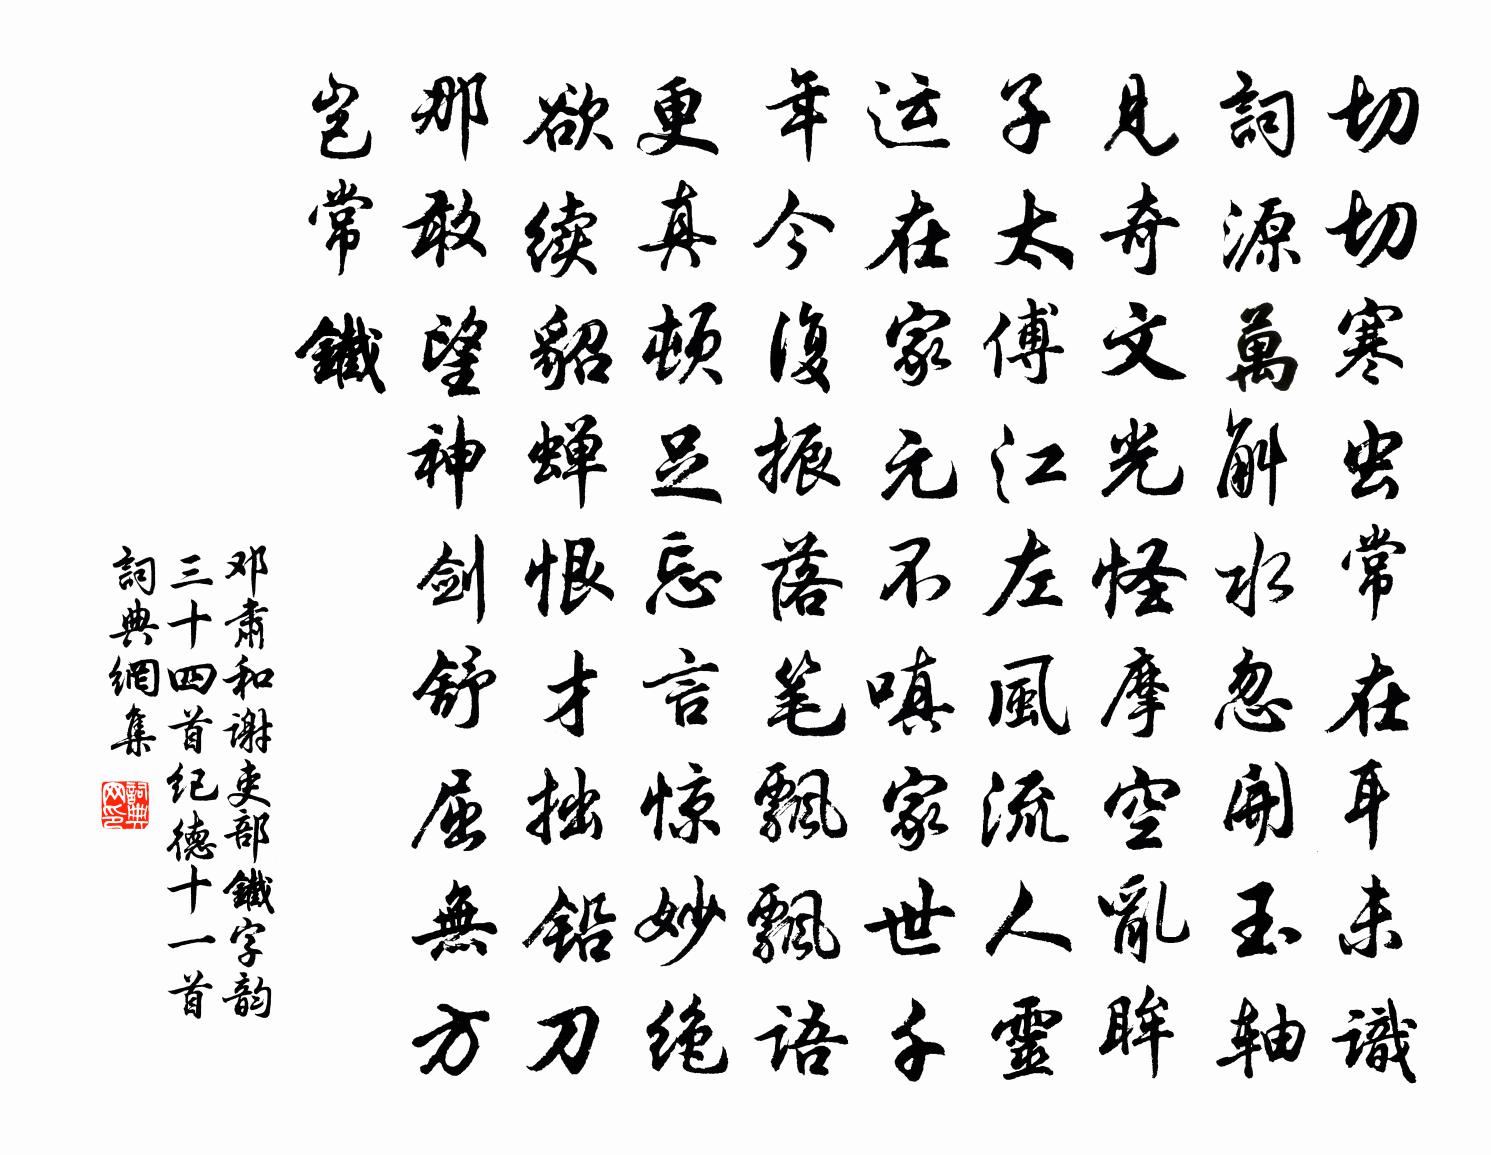 切切寒虫常在耳未識
詞源萬斛水忽開玉軸
見奇文光怪摩空亂眸
子太傅江左風流人靈
运在家元不嗔家世千
年今復振落笔飄飄语
更真顿足忘言惊妙绝
欲续貂蝉恨才拙铅刀
那敢望神剑舒屈無方
豈常鐵
邓肃和谢吏部鐵字韵
三十四首纪德十一首
詞典網集
詞典网印